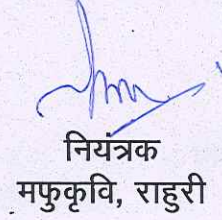 नियंत्रक
मफुकृवि, राहुरी